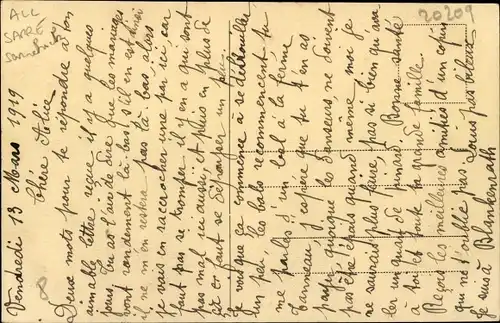 ALL
SARRE
20209
Vendredi 13 Mars 1919
Chère Alice
Deux mots pour te répondre à ton
aimable lettre reçue il y a quelques
jours, tu as l'air de dire que les mariages
vont rondement là bas, s'il en est ainsi
il ne m'en restera pas là bas alors
je vais en raccrocher une par ici car
faut pas se tromper il y en a qui sont
pas mal ici aussi, et puis en plus de
ça il faut se dévorser un peu.
Je vois que ça commence à se débrouiller
un peu, les bals recommencent tu
me parles d'un bal à la ferme
Panneau, j'espère que tu t'en as
payé quoique les danseurs ne doivent
pas être épais quand même, moi je
ne saurais plus faire, pas si bien qu'au
d'un quart de pinard. Bonne santé
à toi et toute la grande famille.
Reçois les meilleures amitiés d'un copin
qui ne t'oublie pas Louis pas bileux
Je suis à Blankenrath
8